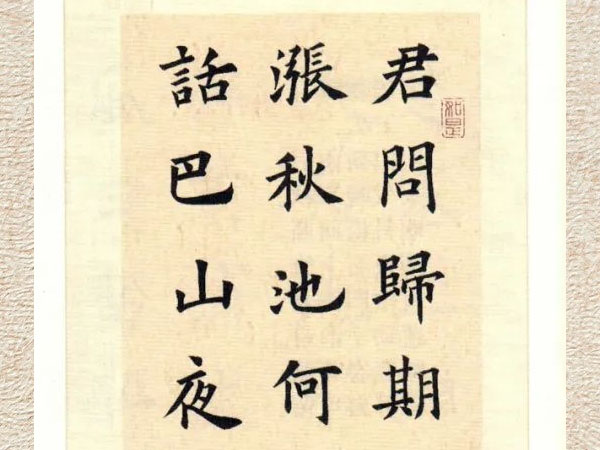 君問歸期
漲秋池何
話巴山夜
如是